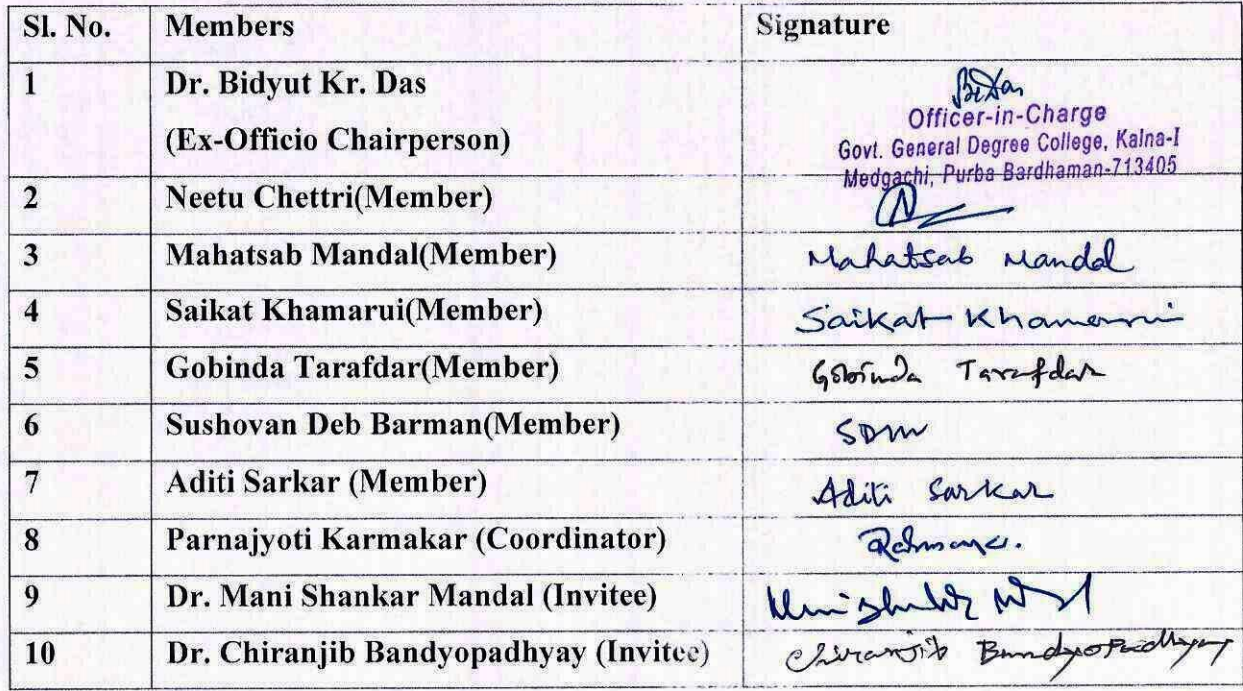 Sl. No. Members Signature
1 Dr. Bidyut Kr. Das
(Ex-Officio Chairperson)
Officer-in-Charge
Govt. General Degree College, Kalna-I
Medgachi, Purba Bardhaman-713405
2 Neetu Chettri(Member)
3 Mahatsab Mandal(Member) Mahatsab Mandal
4 Saikat Khamarui(Member) Saikat Khamarui
5 Gobinda Tarafdar(Member) Gobinda Tarafdar
6 Sushovan Deb Barman(Member)
7 Aditi Sarkar (Member) Aditi Sarkar
8 Parnajyoti Karmakar (Coordinator)
9 Dr. Mani Shankar Mandal (Invitee)
10 Dr. Chiranjib Bandyopadhyay (Invitee) Chiranjib Bandyopadhyay